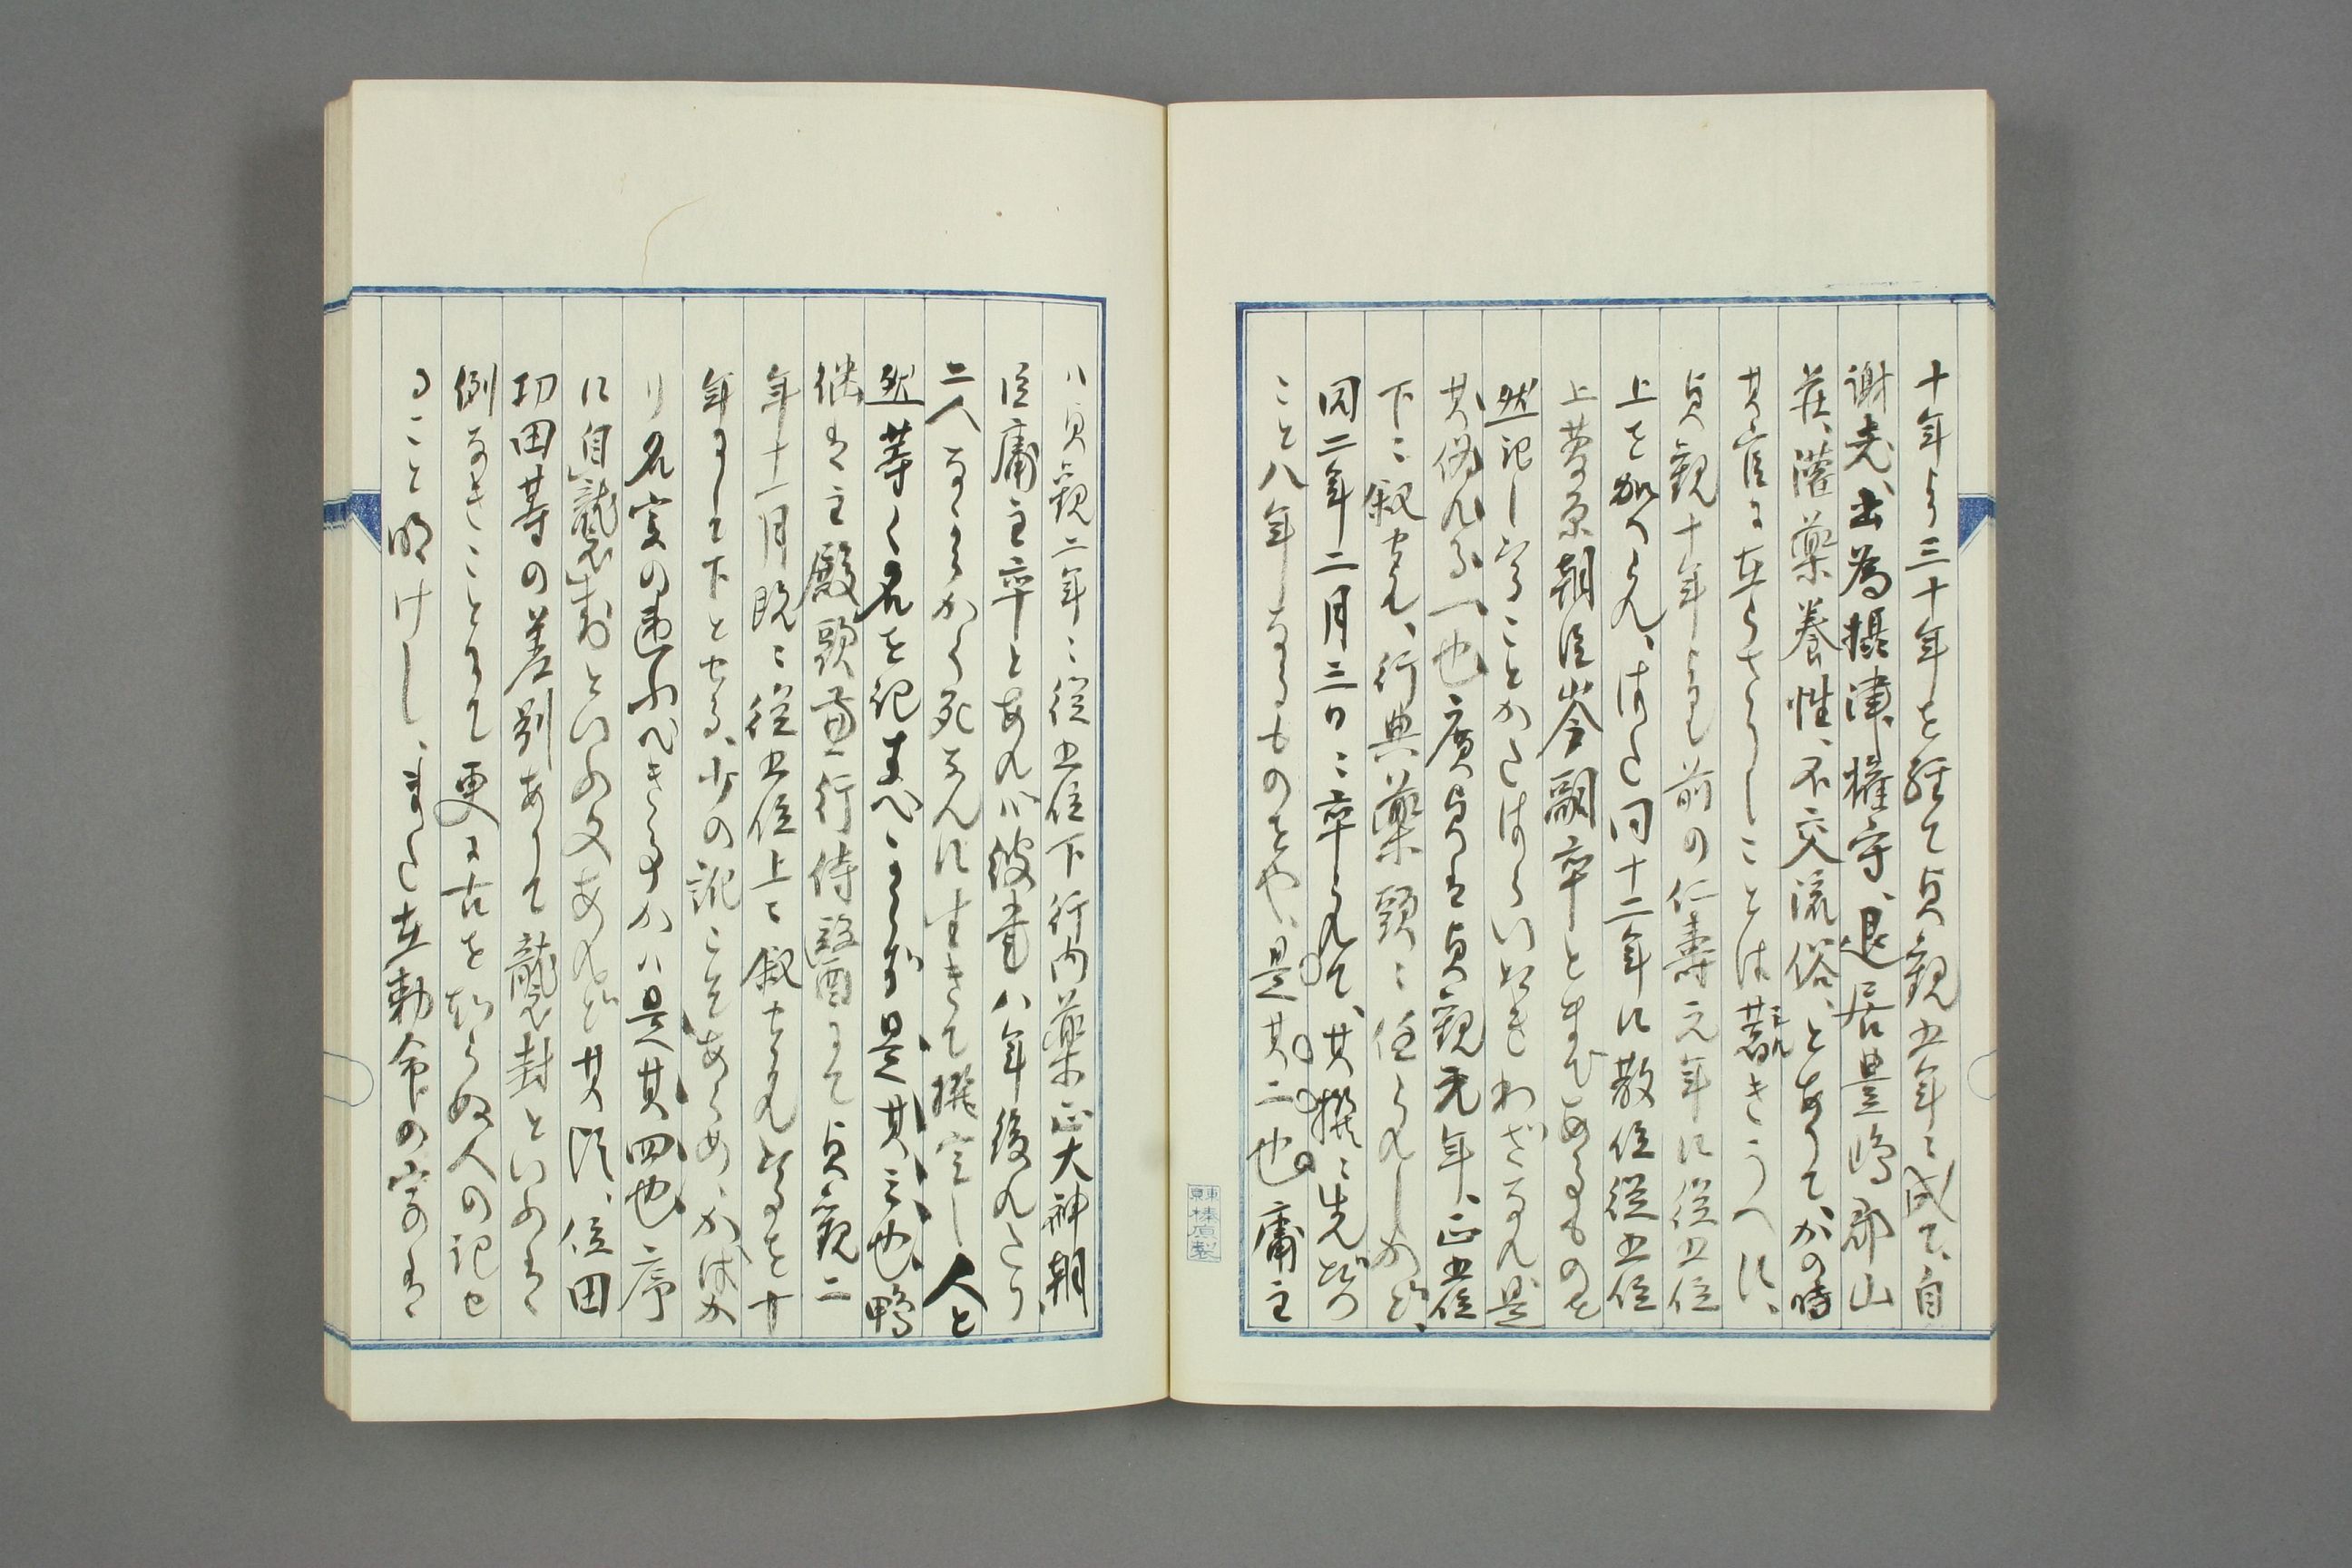 十年より三十年を経て貞観五年に成て、自
謝老、出為摂津権守、退居豊嶋郡山
荘、灌薬養性、不交流俗、とありて、かの時
其官に在らさりしことは著きうへに、
貞観十年よりも前の仁壽元年に従五位
上を加へられ、はた同十二年に散位従五位
上菅原朝臣岑嗣卒とさへあるものを
然記しいることかたはらいたきわざなれ是
其偽れる一也廣貞は貞観元年、正五位
下に叙せられ、行典薬頭に任られしかど、
同二年二月三日に卒られて、其撰に先だつ
こと八年なるものをや、是其二也庸主
ハ貞観二年に従五位下行内薬正大神朝
臣庸主卒とあれバ彼書ハ年後れたり
二人ながらかく死ぬるに生きて撰定し人と
然等く名を記すべくもあらず是其三也、鴨
継は主殿頭兼行侍醫にて貞観二
年十一月既に従五位上に叙せられたるを十
年にして下とせる、少の訛こそあらめ、かばか
り名実の違ふべきものかハ是其四也序
に自襲封といふ文あれど其頃、位田
功田等の差別ありて襲封といふは
例なきことにて更に古を知らぬ人の記せ
ること明けし、また在勅命の字のは
東京榛原製